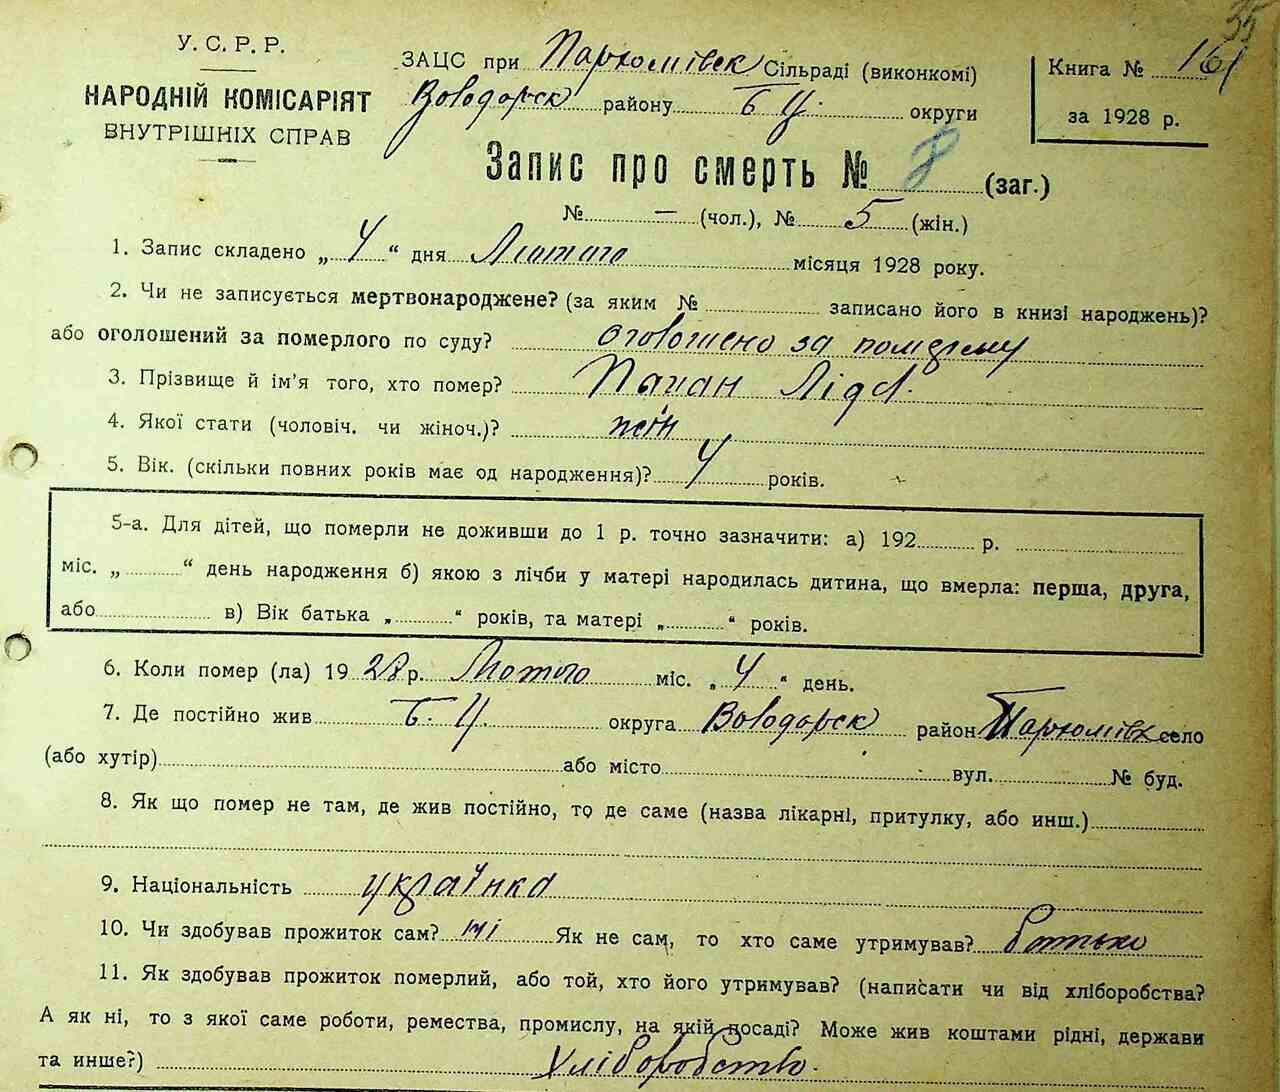 35
У. С. Р. Р.
НАРОДНІЙ КОМІСАРІЯТ
ВНУТРІШНІХ СПРАВ
ЗАЦС при Пархомівск Сільраді (виконкомі)
Володарск району Б Ц. округи
Книга № 161
за 1928 р.
Запис про смерть № 8 (заг.)
№ — (чол.), № 5 (жін.)
1. Запис складено „ 4 “ дня Лютого місяця 1928 року.
2. Чи не записується мертвонароджене? (за яким № записано його в книзі народжень)?
або оголошений за померлого по суду? оговошено за померему
3. Прізвище й ім'я того, хто помер? Пацан Лід
4. Якої стати (чоловіч. чи жіноч.)? жін
5. Вік. (скільки повних років має од народження)? 4 років.
5-а. Для дітей, що померли не доживши до 1 р. точно зазначити: а) 192 р.
міс. „ “ день народження б) якою з лічби у матері народилась дитина, що вмерла: перша, друга,
або в) Вік батька „ “ років, та матері „ “ років.
6. Коли помер (ла) 19 28 р. Лютого міс. „ 4 “ день.
7. Де постійно жив Б. Ц. округа Володарск район Пархомівк село
(або хутір) або місто вул. № буд.
8. Як що помер не там, де жив постійно, то де саме (назва лікарні, притулку, або инш.)
9. Національність українка
10. Чи здобував прожиток сам? ні Як не сам, то хто саме утримував? батько
11. Як здобував прожиток померлий, або той, хто його утримував? (написати чи від хліборобства?
А як ні, то з якої саме роботи, ремества, промислу, на якій посаді? Може жив коштами рідні, держави
та инше?) Хліборобство.